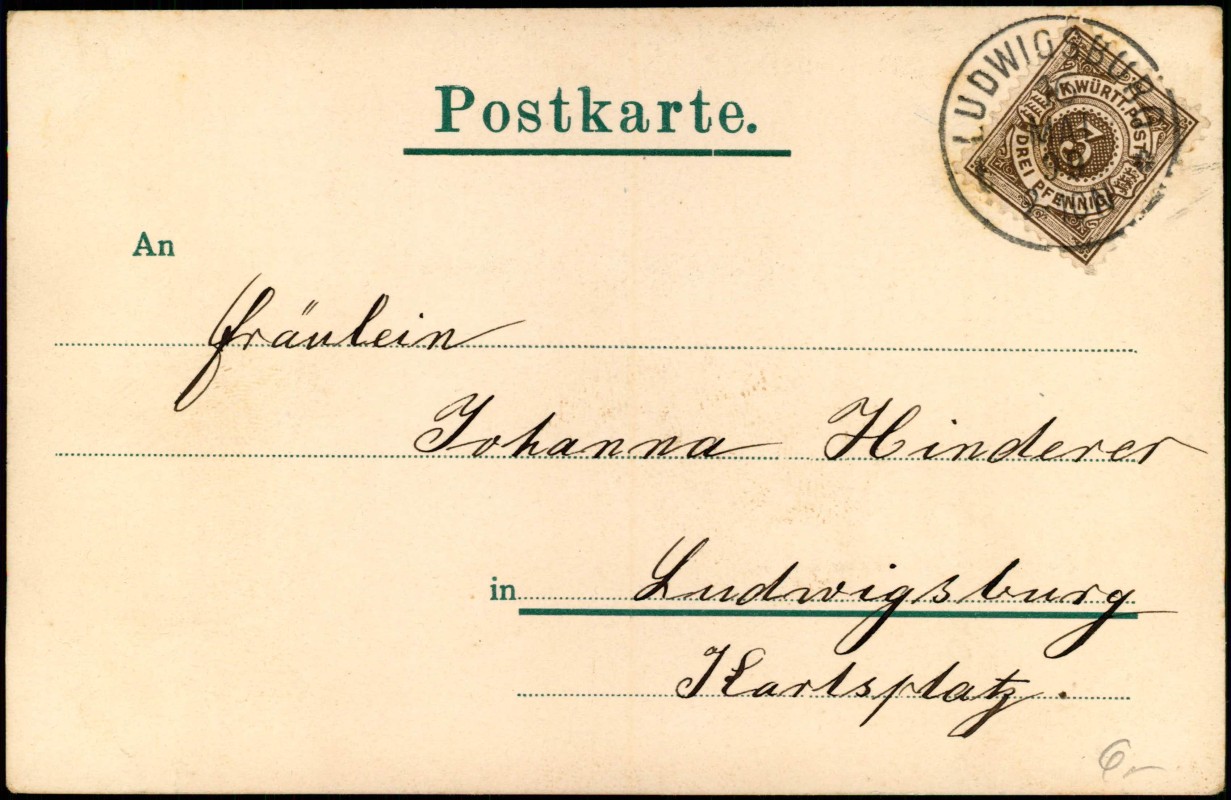 Postkarte.
LUDWIGSBURG
K.WÜRTT.POST
3
DREI PFENNIG
An
Fräulein
Johanna Hinderer
in Ludwigsburg
Karlsplatz.
6,-